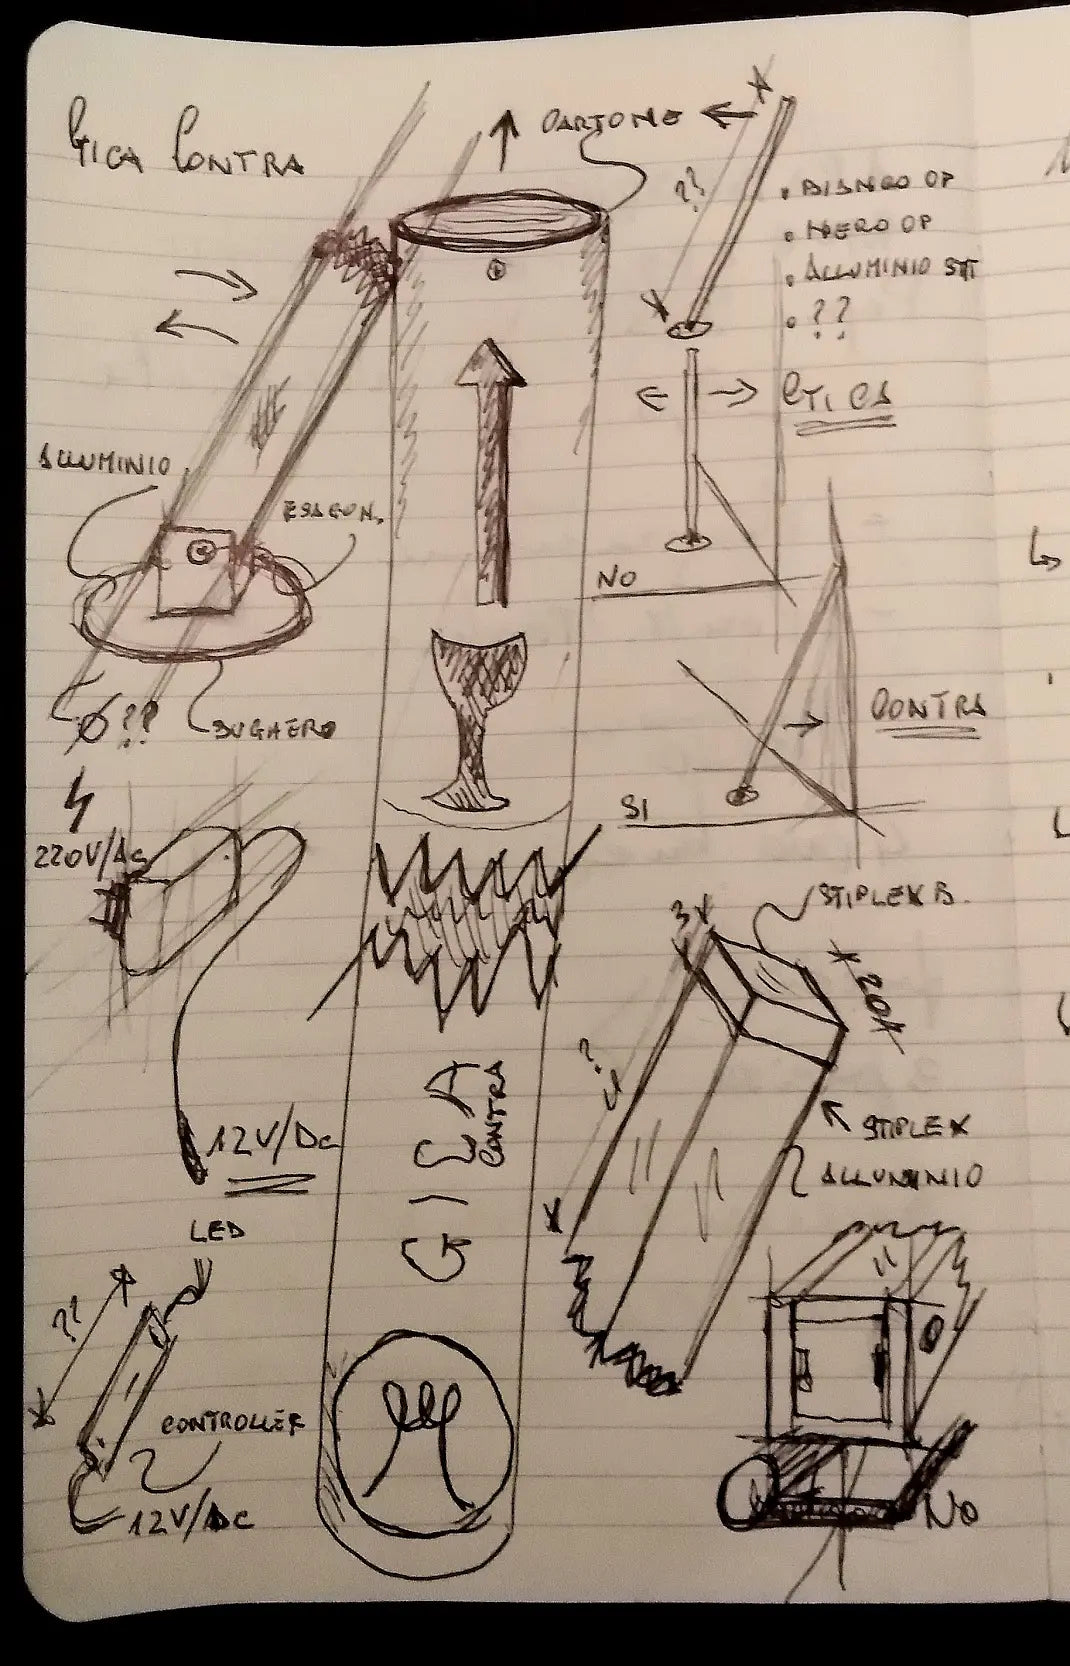 GICA CONTRA
CARTONE
??
• BIANCO OP
• NERO OP
• ALLUMINIO
• ??
GICA
ALLUMINIO
ESAGON.
NO
CONTRA
Ø??
SUGHERO
SI
220V/AC
STIPLEX B.
3X
X 20X
?
12V/DC
STIPLEX
ALLUMINIO
GICA
CONTRA
LED
??
CONTROLLER
12V/DC
NO